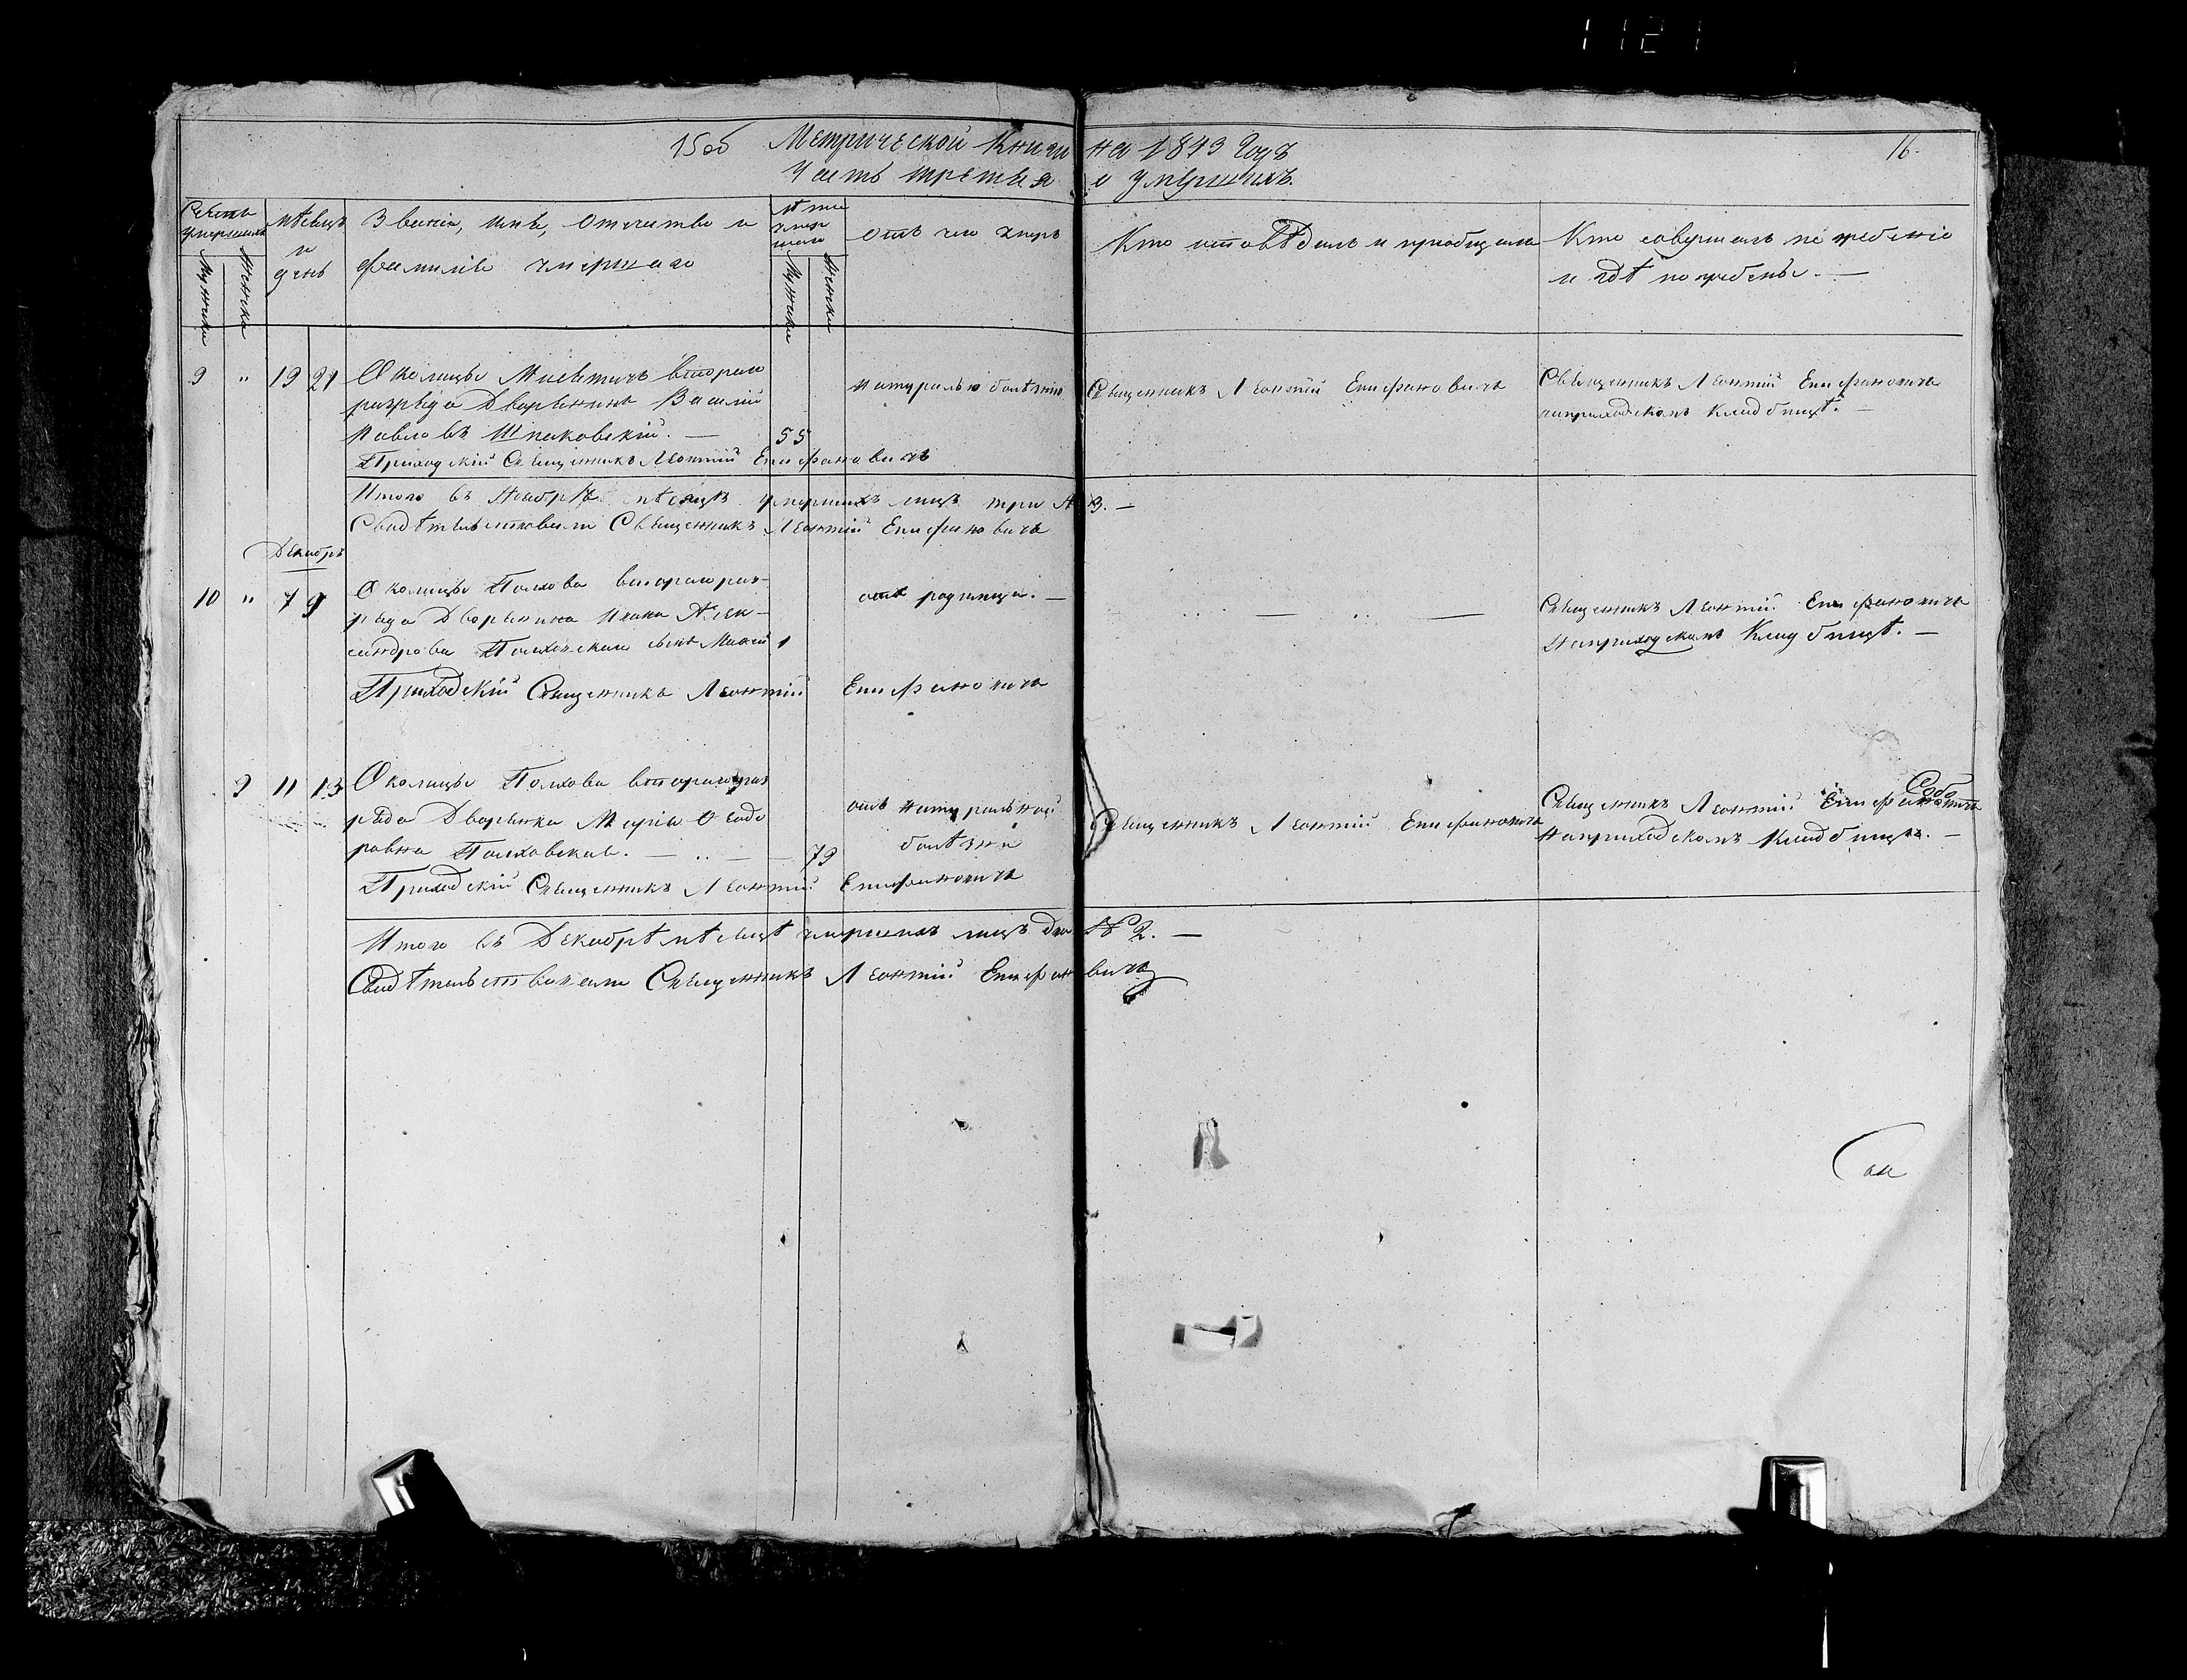 1121
15 об Метрической Книги на 1843 Годъ 16.
Часть третья о умершихъ.
Счетъ умершихъ
Мужеска
Женска
мѣсяцъ и день
Званіе, имя, отчество и фамилія умершаго
Лѣта умершаго
Мужеска
Женска
Отъ чего умеръ
Кто исповѣдалъ и приобщалъ
Кто совершалъ погребеніе
и гдѣ погребены. —
9 " 19 21 Околицы втораго
разряда Дворянинъ Василій
Павловъ Шпаковскій. — 55
натуральною болѣзнію
Священникъ Леонтій Епифановичъ
Священникъ Леонтій Епифановичъ
на приходскомъ кладбищѣ. —
Приходскій Священникъ Леонтій Епифановичъ
Итого въ Ноябрѣ мѣсяцѣ умершихъ лицъ три № 3. —
Свидѣтельствовали Священникъ Леонтій Епифановичъ
Декабрь
10 " 7 9 Околицы втораго раз-
ряда Дворянина Ивана Алек-
сандрова сынъ 1
отъ родимца. —
Священникъ Леонтій Епифановичъ
на приходскомъ Кладбищѣ. —
Приходскій Священникъ Леонтій Епифановичъ
9 11 13 Околицы втораго раз
ряда Дворянка Марія Ѳеодо
ровна — .. — — 79
отъ натуральной
болѣзни
Священникъ Леонтій Епифановичъ
Священникъ Леонтій Епифановичъ
на приходскомъ Кладбищѣ. —
Собо
Приходскій Священникъ Леонтій Епифановичъ
Итого въ Декабрѣ мѣсяцѣ умершихъ лицъ два № 2. —
Свидѣтельствовали Священникъ Леонтій Епифановичъ